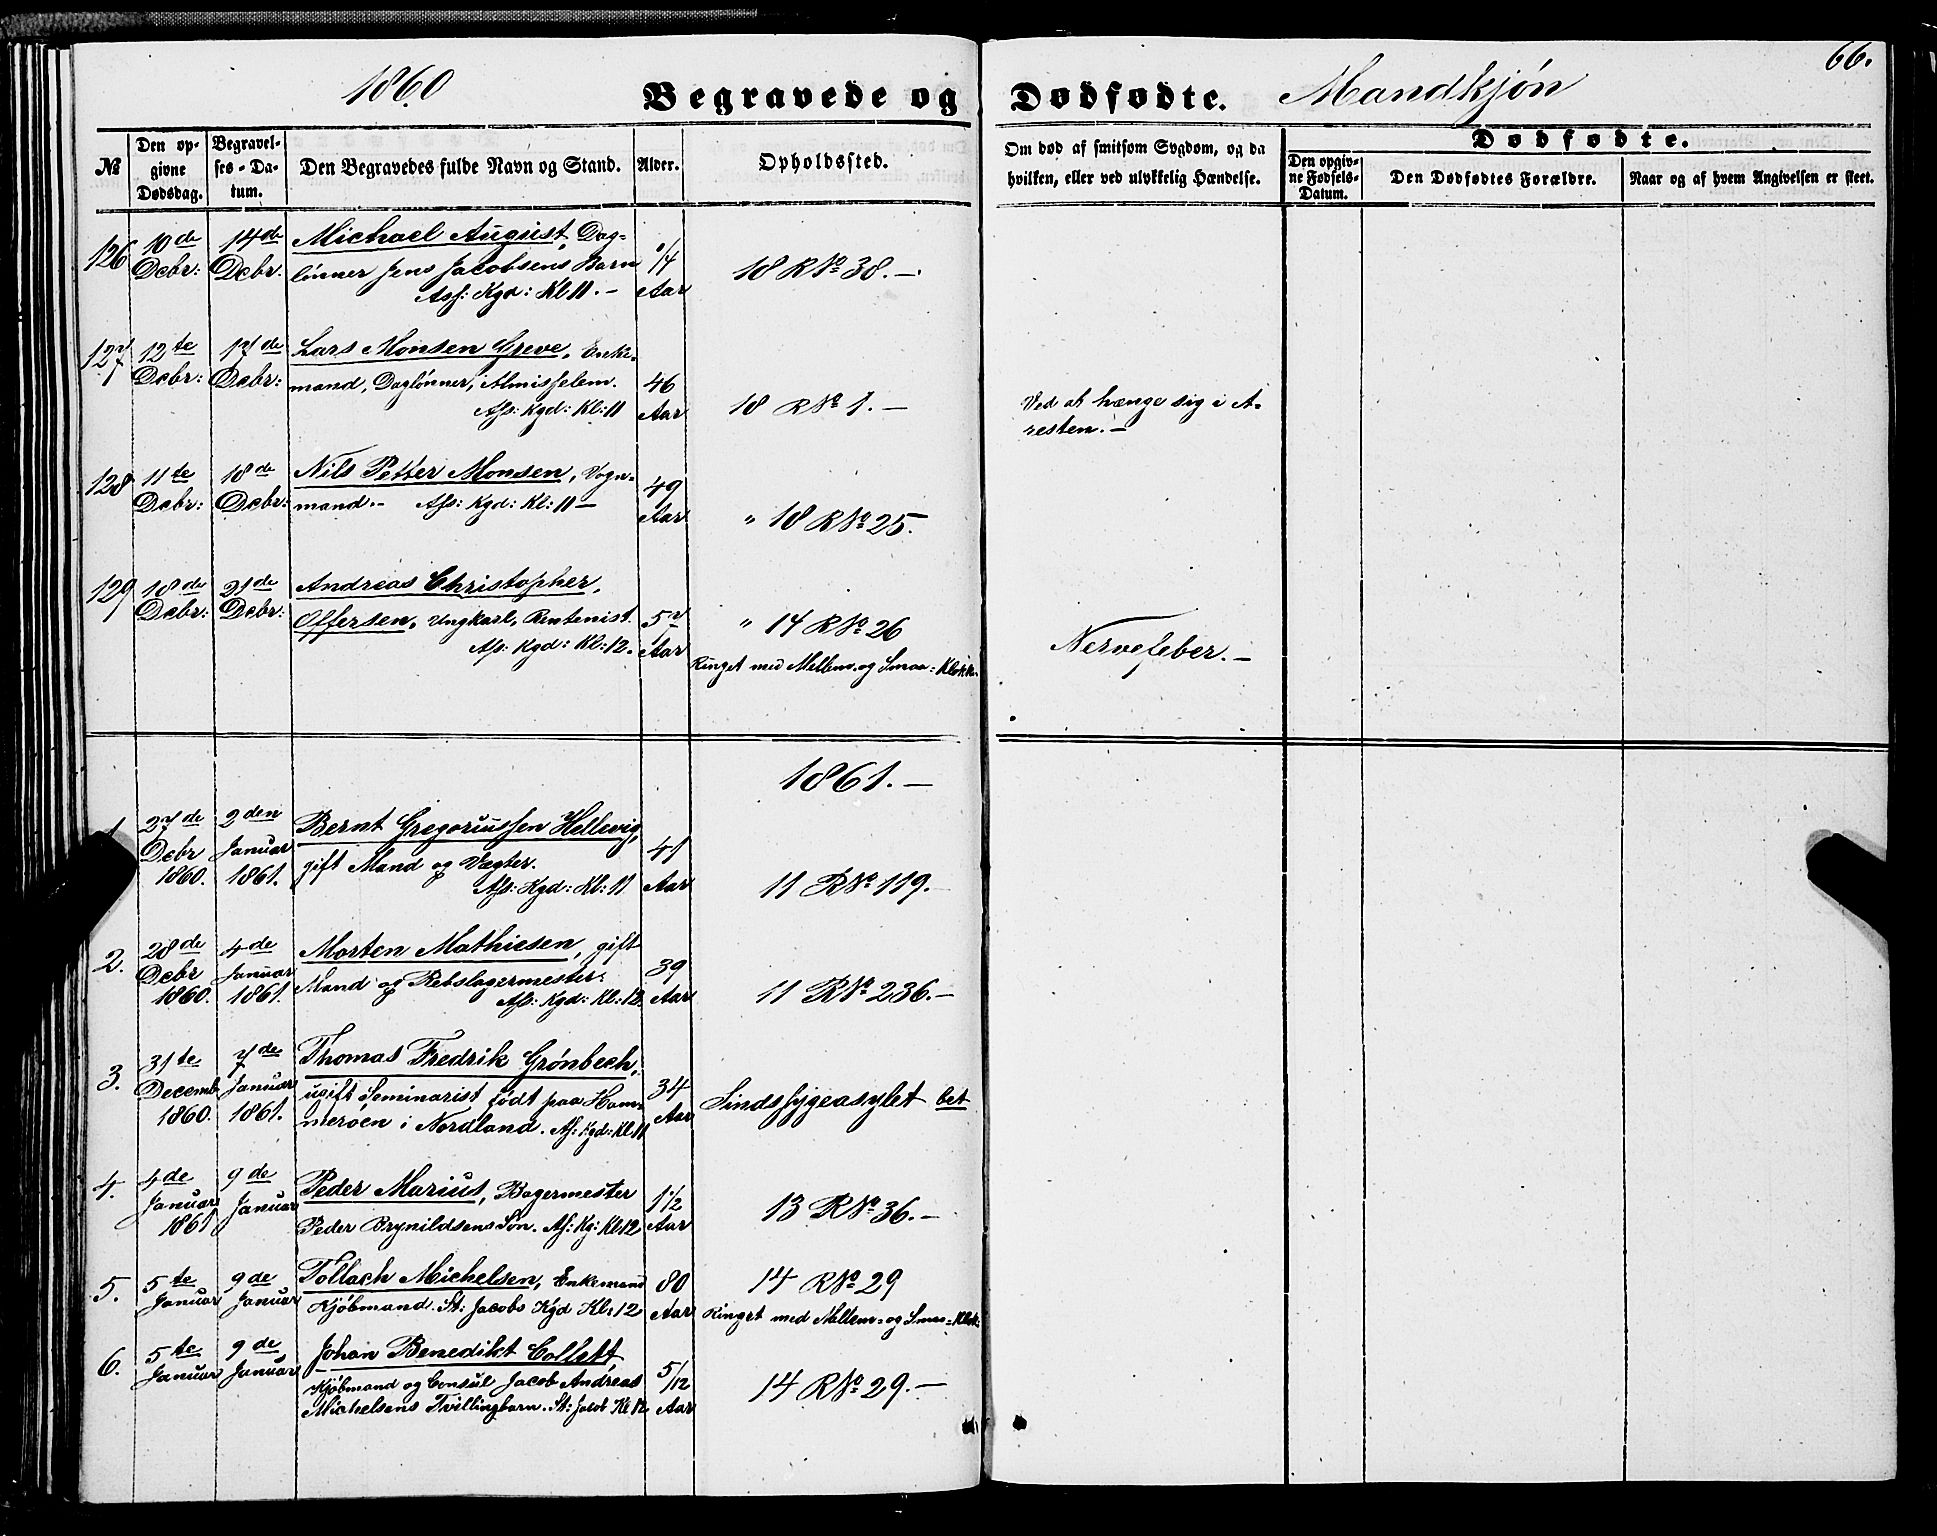 1860 Begravede og Dødfødte. Mandkjøn 66.
№ Den opgivne Dødsdag. Begravelses-Datum. Den Begravedes fulde Navn og Stand. Alder. Opholdssted. Om død af smitsom Sygdom, og da hvilken, eller ved ulykkelig Hændelse. Dødfødte. Den opgivne Fødsels-Datum. Den Dødfødtes Forældre. Naar og af hvem Angivelsen er skeet.
126 10de 14de Michael August, Dag=
Dcbr: Dcbr. lønner Jens Jacobsens Barn 1/4 18 R№ 38.—
Ass: Kgd: Kl 11.— Aar
127 12te 17de Lars Monsen Greve, Enke-
Dcbr: Dcbr: mand, Daglønner, Almisselem. 46
Ass: Kgd: Kl: 11 Aar 18 R№ 1.— Ved at hænge sig i A-
resten.—
128 11te 18de Nils Petter Monsen, Vogn-
Dcbr: Dcbr: mand.- Ass: Kgd: Kl: 11— 49
Aar " 18 R№ 25.
129 18de 21de Andreas Christopher
Dcbr: Dcbr: Offersen, Ungkarl, Rentenist. 57 " 14 R№ 26
Ass: Kgd: Kl: 12. Aar Ringet med Mellem- og Smaa= Klokk. Nervefeber.—
1861.—
1 27de 2den Bernt Gregoriussen Hellevig,
Dcbr Januar gift Mand og Vægter. 41
1860. 1861. Ass: Kgd: Kl: 11 Aar 11 R№ 119.
2. 28de 4de Morten Mathiesen, gift
Dcbr Januar Mand og Rebslagermester. 39
1860. 1861. Ass: Kgd: Kl: 12. Aar 11 R№ 236.—
3. 31te 7de Thomas Fredrik Grønbech,
Decemb Januar ugift Seminarist født paa Ham- 34 Sindssygeasylet
1860. 1861. merøen i Nordland. As: Kgd: Kl 11 Aar
4. 4de 9de Peder Marius, Bagermester 1 1/2
Januar Januar Peder Brynildsens Søn. As: Kg: Kl 12 Aar 13 R№ 36.—
1861
5. 5te 9de Tollach Michelsen, Enkemand 80 14 R№ 29
Januar Januar Kjøbmand. St: Jacobs Kgd Kl: 12 Aar Ringet med Mellem= og Smaa= Klok:
6. 5te 9de Johan Benedikt Collett,
Januar Januar Kjøbmand og Consul Jacob Andreas 5/12 14 R№ 29.—
Michelsens Tvillingbarn. St: Jacob Kl 12 Aar